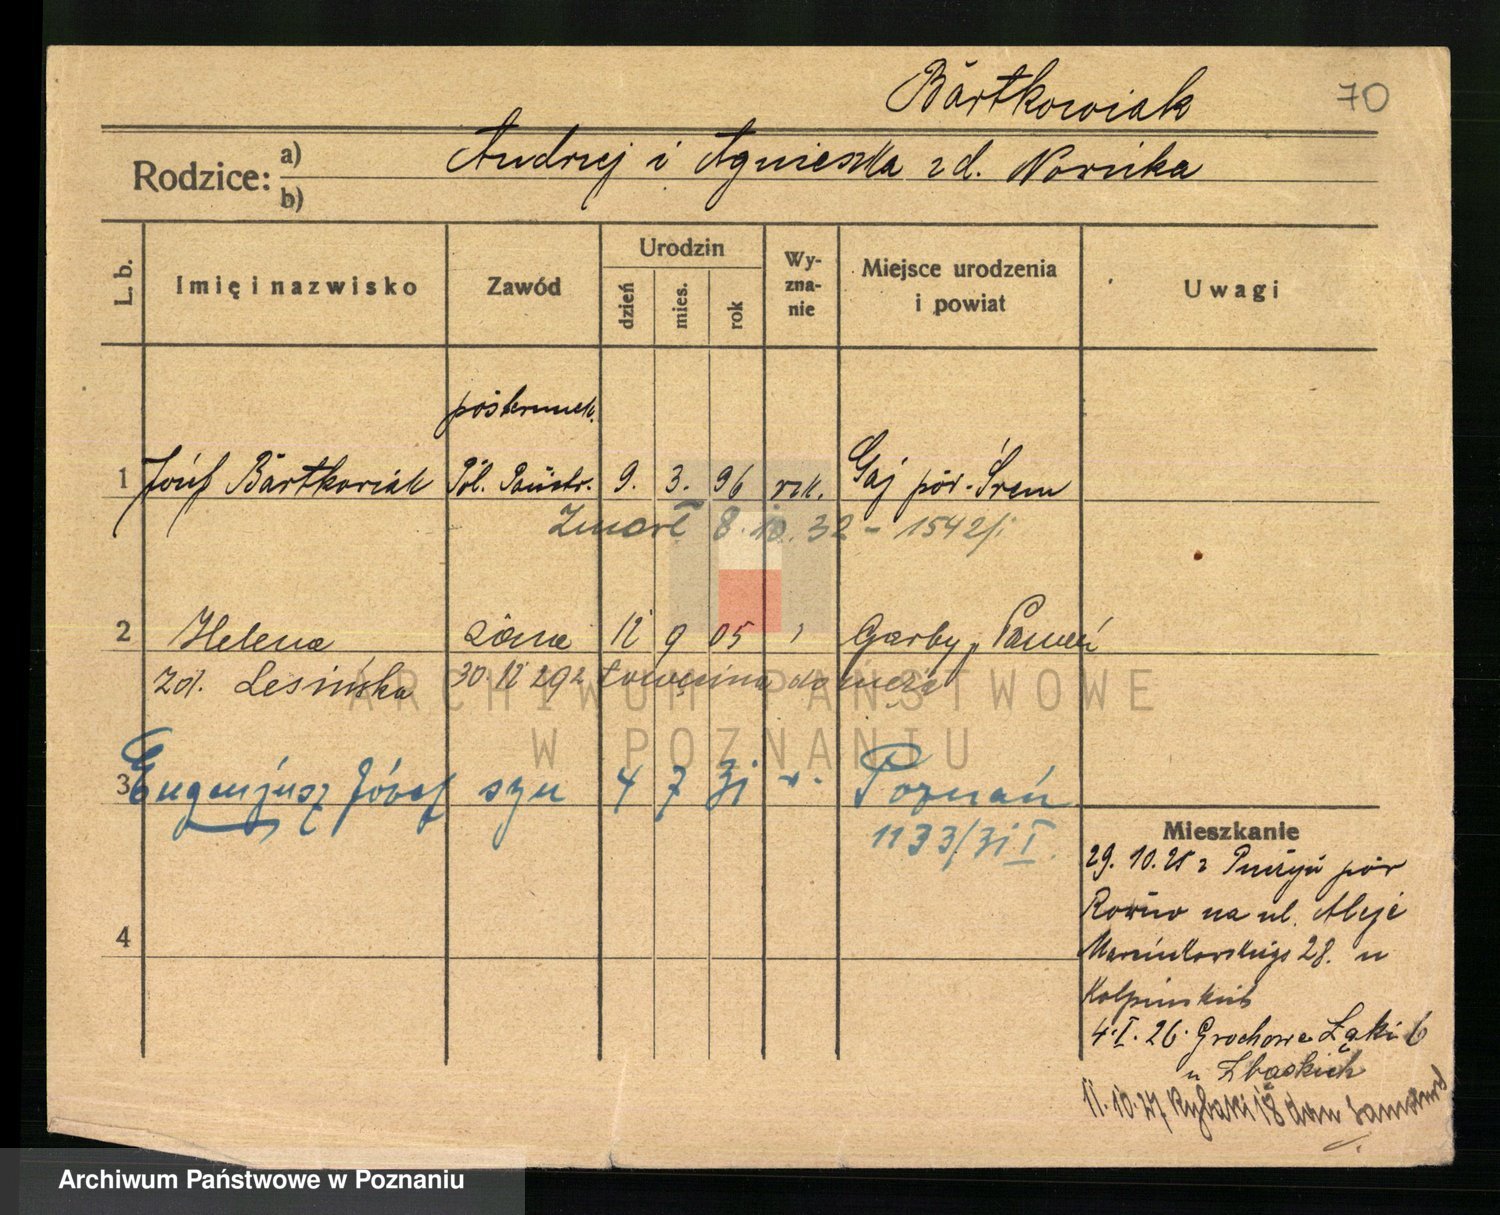 Bartkowiak
70
Rodzice: a) b)
Andrzej i Agnieszka z d. Nowicka
L. b.
Imię i nazwisko
Zawód
Urodzin
dzień
mies.
rok
Wy-
zna-
nie
Miejsce urodzenia
i powiat
Uwagi
posterunk.
1 Józef Bartkowiak Pol. Państw. 9. 3. 96 rzk. Gaj pow. Śrem
Zmarł 8.10.32 - 1542/
2 Helena żona 12 9 05 Garby, Poznań
zd. Lesińska
3 Eugenjusz Józef syn 4 7 31 Poznań
1133/31 I.
4
Mieszkanie
29. 10. 25 z pow
na ul. Aleje
Marcinkowskiego 28. u
4. I. 26. Grochowe Łąki 6
u Zbąskich
11.10.27 Rybaki 18
ARCHIWUM PAŃSTWOWE
W POZNANIU
Archiwum Państwowe w Poznaniu